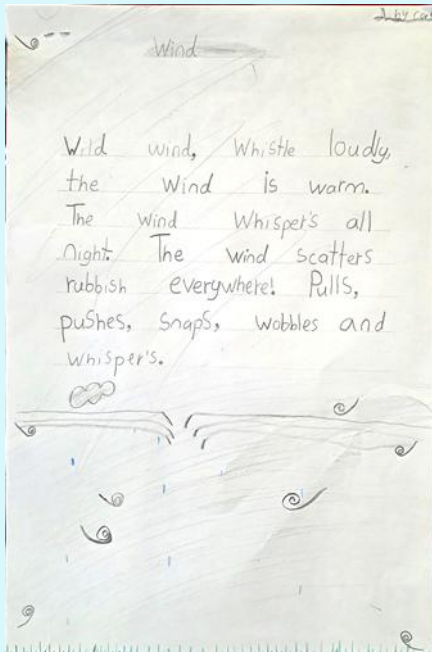 Wind
Wild wind, Whistle loudly,
the Wind is warm.
The wind Whisper's all
night. The wind scatters
rubbish everywhere! Pulls,
pushes, snaps, wobbles and
whisper's.